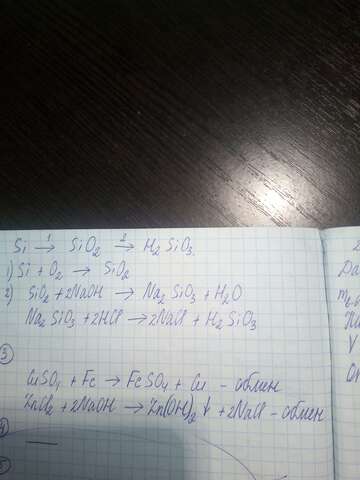 Si →¹ SiO₂ →² H₂SiO₃
1) Si + O₂ → SiO₂
2) SiO₂ + 2NaOH → Na₂SiO₃ + H₂O
Na₂SiO₃ + 2HCl → 2NaCl + H₂SiO₃
3
CuSO₄ + Fe → FeSO₄ + Cu - обмен
ZnCl₂ + 2NaOH → Zn(OH)₂↓ + 2NaCl - обмен
4
5
2
Да
V